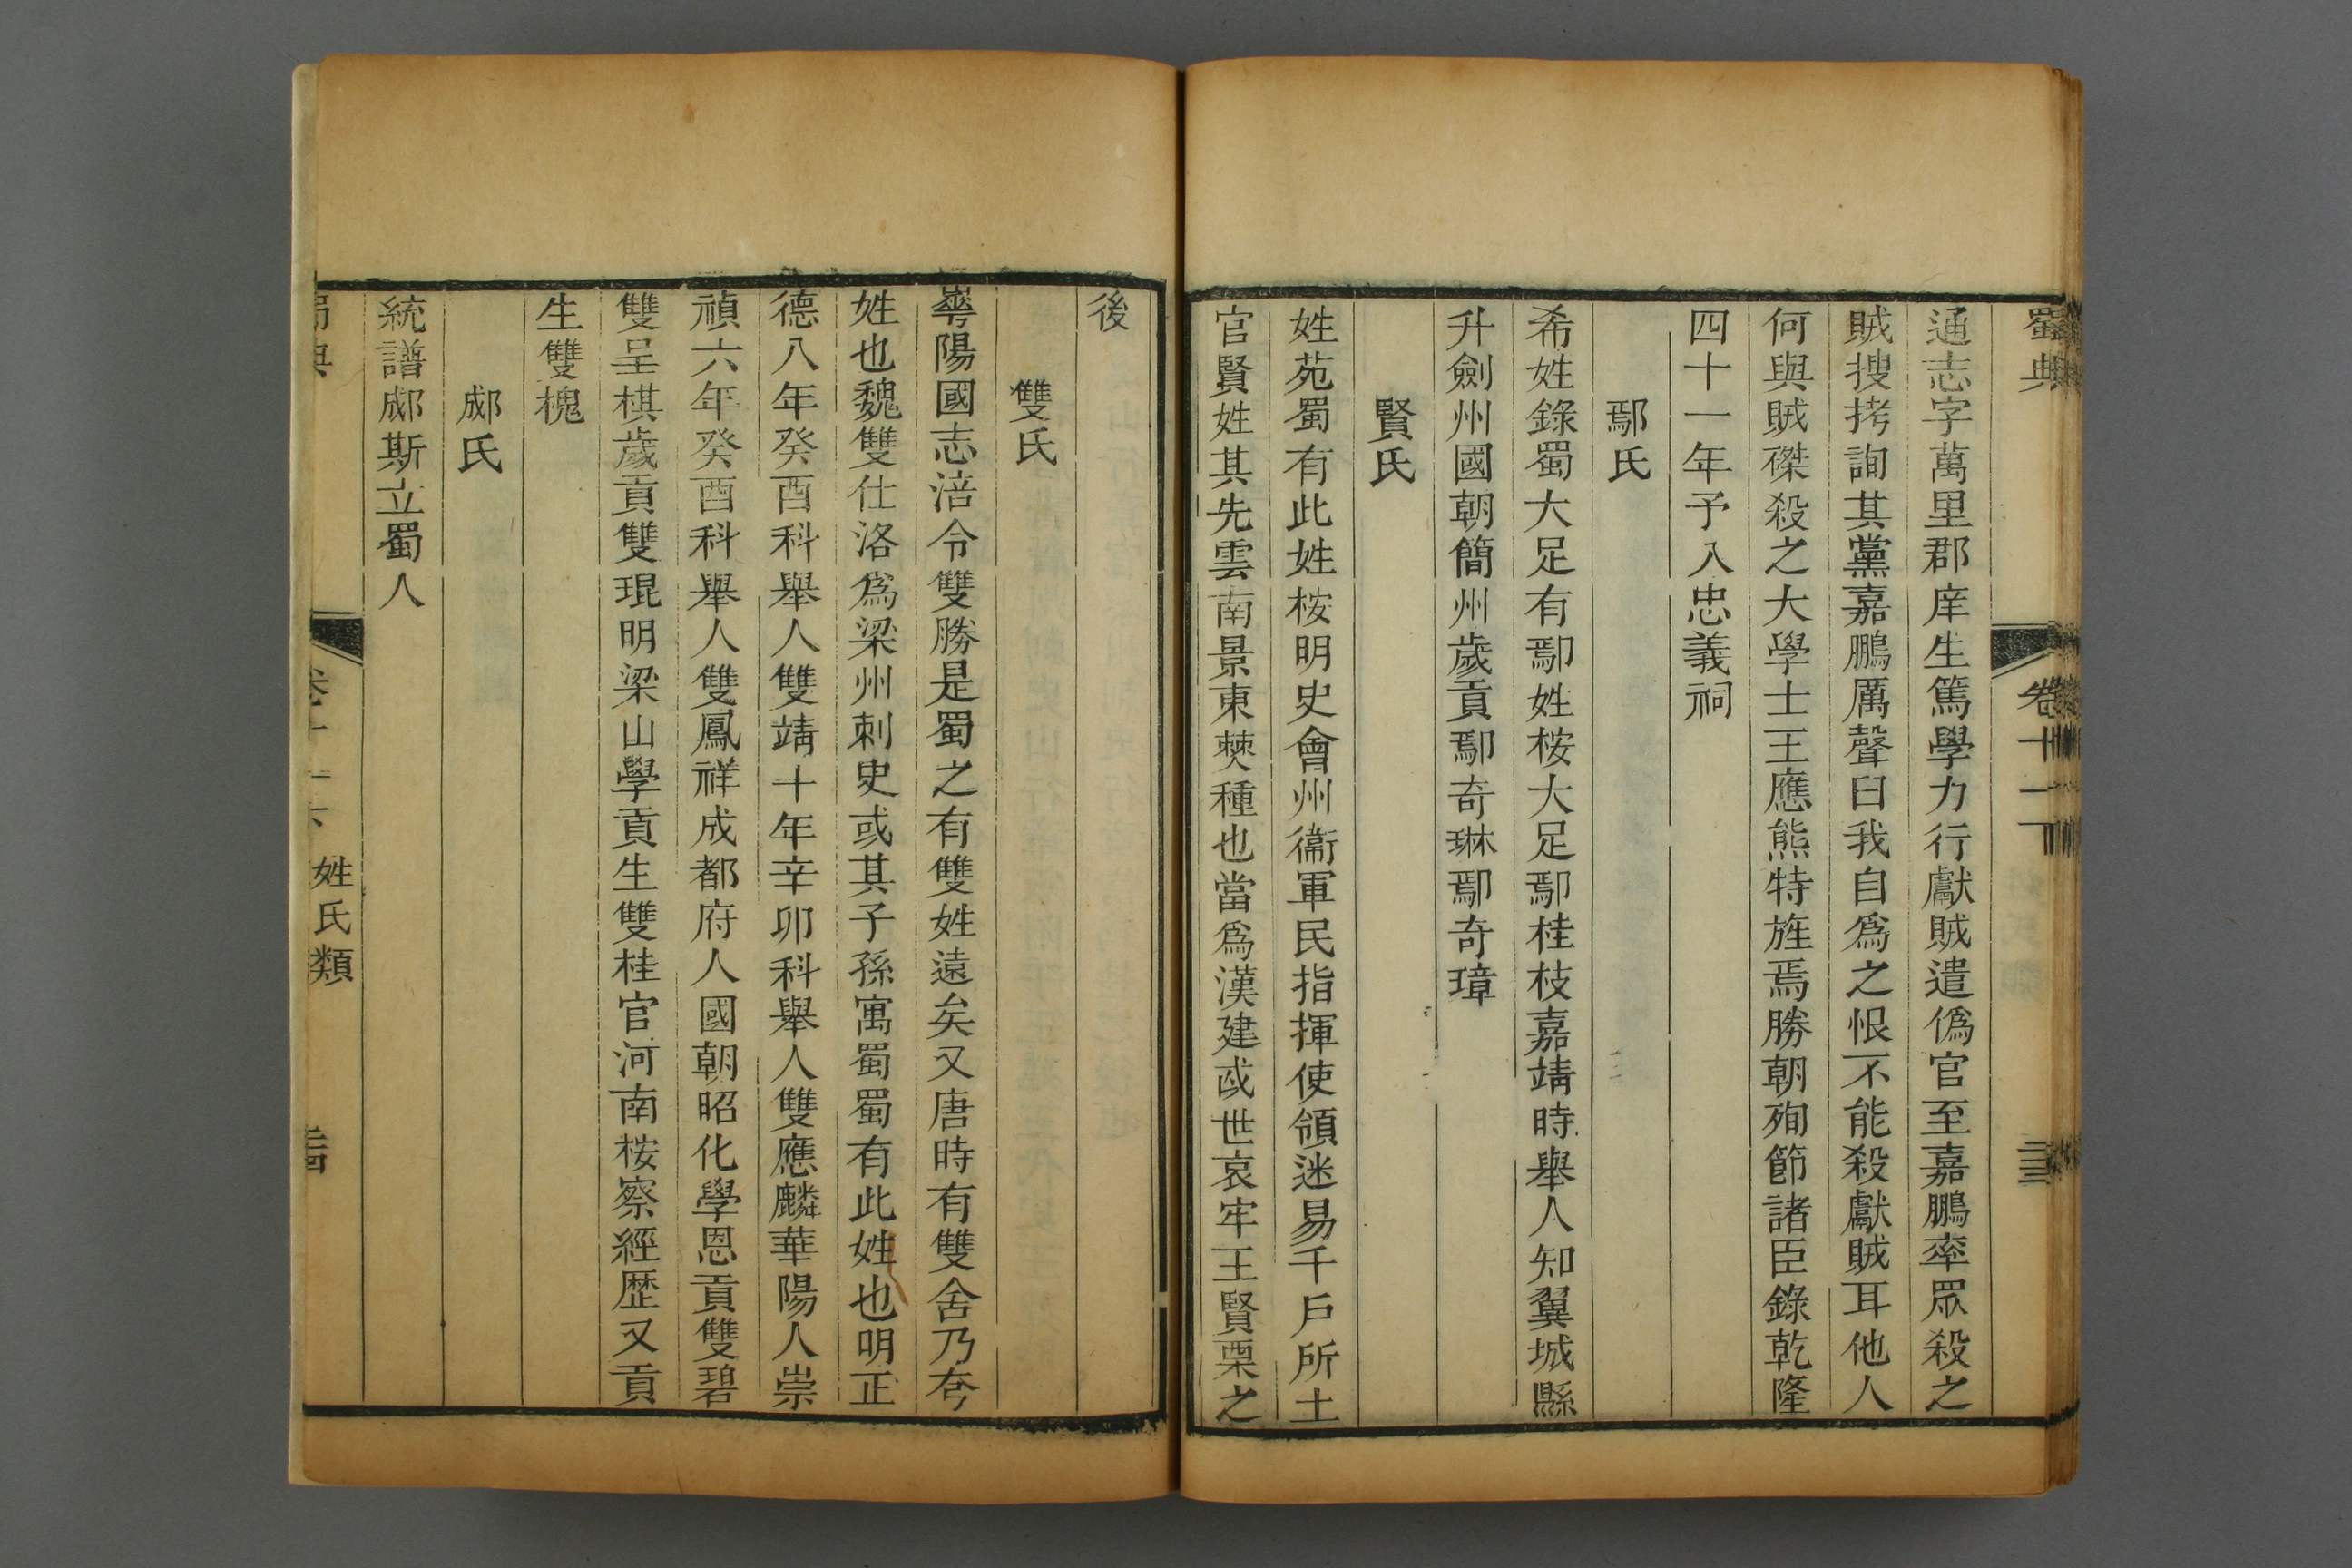 蜀典
卷十二
通志字萬里郡庠生篤學力行獻賊遣僞官至嘉鵬率眾殺之
賊搜拷詢其黨嘉鵬厲聲曰我自爲之恨不能殺獻賊耳他人
何與賊磔殺之大學士王應熊特旌焉勝朝殉節諸臣錄乾隆
四十一年予入忠義祠
鄢氏
希姓錄蜀大足有鄢姓桉大足鄢桂枝嘉靖時舉人知翼城縣
升劍州國朝簡州歲貢鄢奇琳鄢奇璋
賢氏
姓苑蜀有此姓桉明史會州衞軍民指揮使領迷易千戶所土
官賢姓其先雲南景東僰種也當爲漢建武世哀牢王賢栗之
後
雙氏
華陽國志涪令雙勝是蜀之有雙姓遠矣又唐時有雙舍乃夸
姓也魏雙仕洛爲梁州刺史或其子孫寓蜀蜀有此姓也明正
德八年癸酉科舉人雙靖十年辛卯科舉人雙應麟華陽人崇
禎六年癸酉科舉人雙鳳祥成都府人國朝昭化學恩貢雙碧
雙呈棋歲貢雙琨明梁山學貢生雙桂官河南桉察經歷又貢
生雙槐
郕氏
統譜郕斯立蜀人
姓氏類